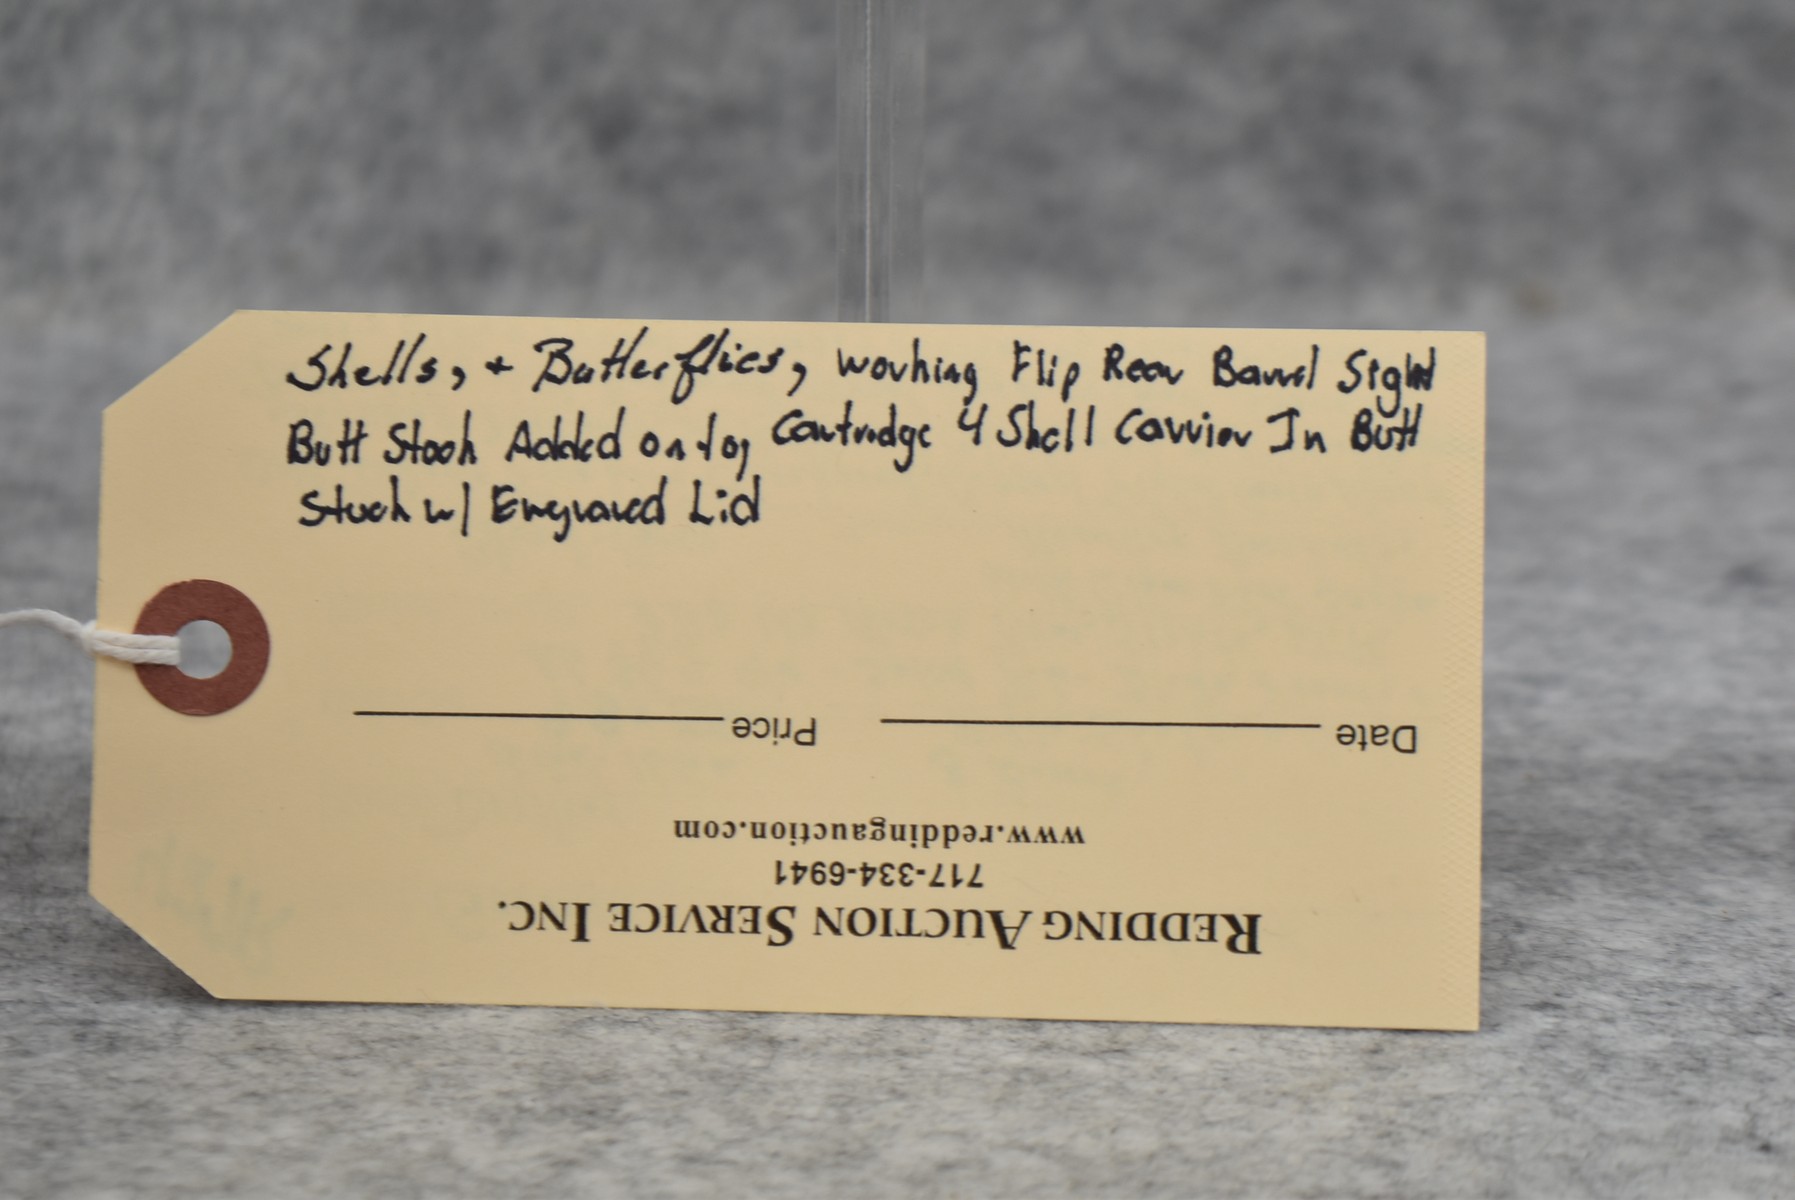 Shells, + Butterflies, working Flip Rear Barrel Sight
Butt Stock Added on toy Cartridge 4 Shell Carrier In Butt
Stock w/ Engraved Lid
Date Price
www.reddingauction.com
717-334-6941
REDDING AUCTION SERVICE INC.